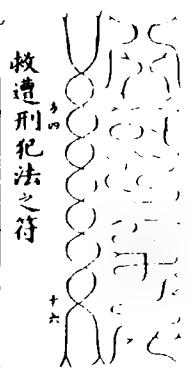 救遭刑犯法之符
多四
十六